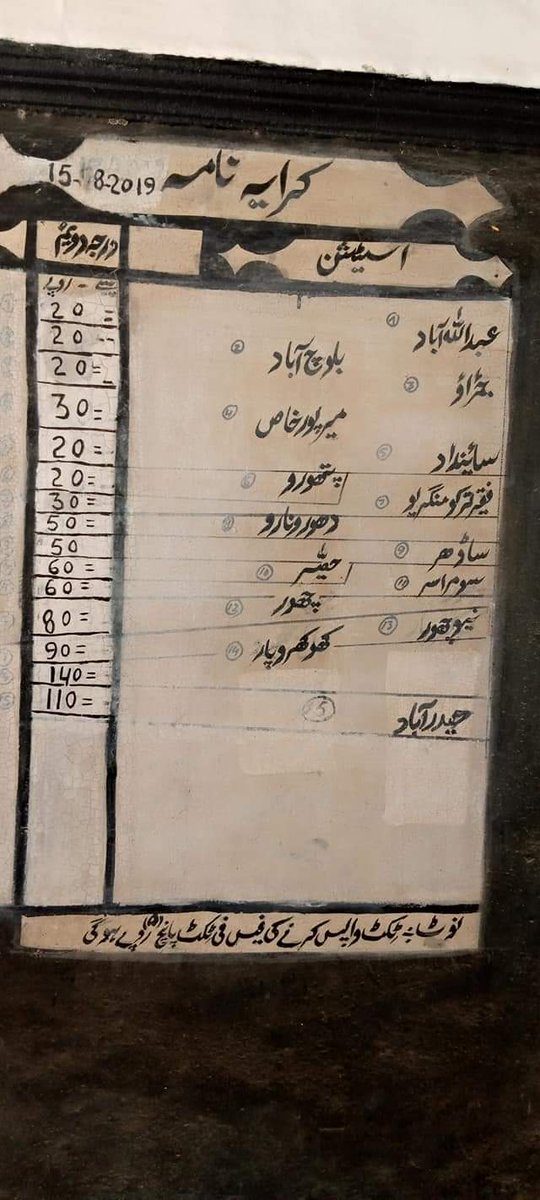 کرایہ نامہ 15-8-2019
اسٹیشن
درجہ دوئم
پیسے - روپے
① عبداللہ آباد
20 =
② بلوچ آباد
20 =
③ جڑاؤ
20 =
④ میرپورخاص
30 =
⑤ سائینداد
20 =
⑥ پتھورو
20 =
⑦ فقیر ترکو منگریو
30 =
⑧ دھورونارو
50 =
⑨ ساڈھر
50
⑩ حیٹسر
60 =
⑪ سومراسر
60 =
⑫ پچھور
80 =
⑬ نیوچھور
90 =
⑭ کھوکھروپار
140 =
⑮ حیدرآباد
110 =
نوٹ :۔ ٹکٹ واپس کرنے کی فیس فی ٹکٹ پانچ (5) روپے ہوگی